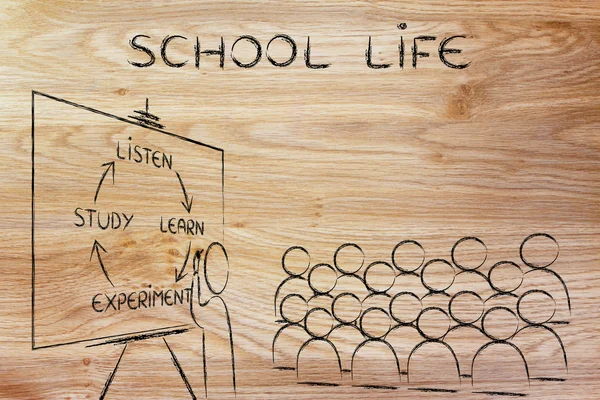 SCHOOL LIFE
LISTEN
STUDY LEARN
EXPERIMENT